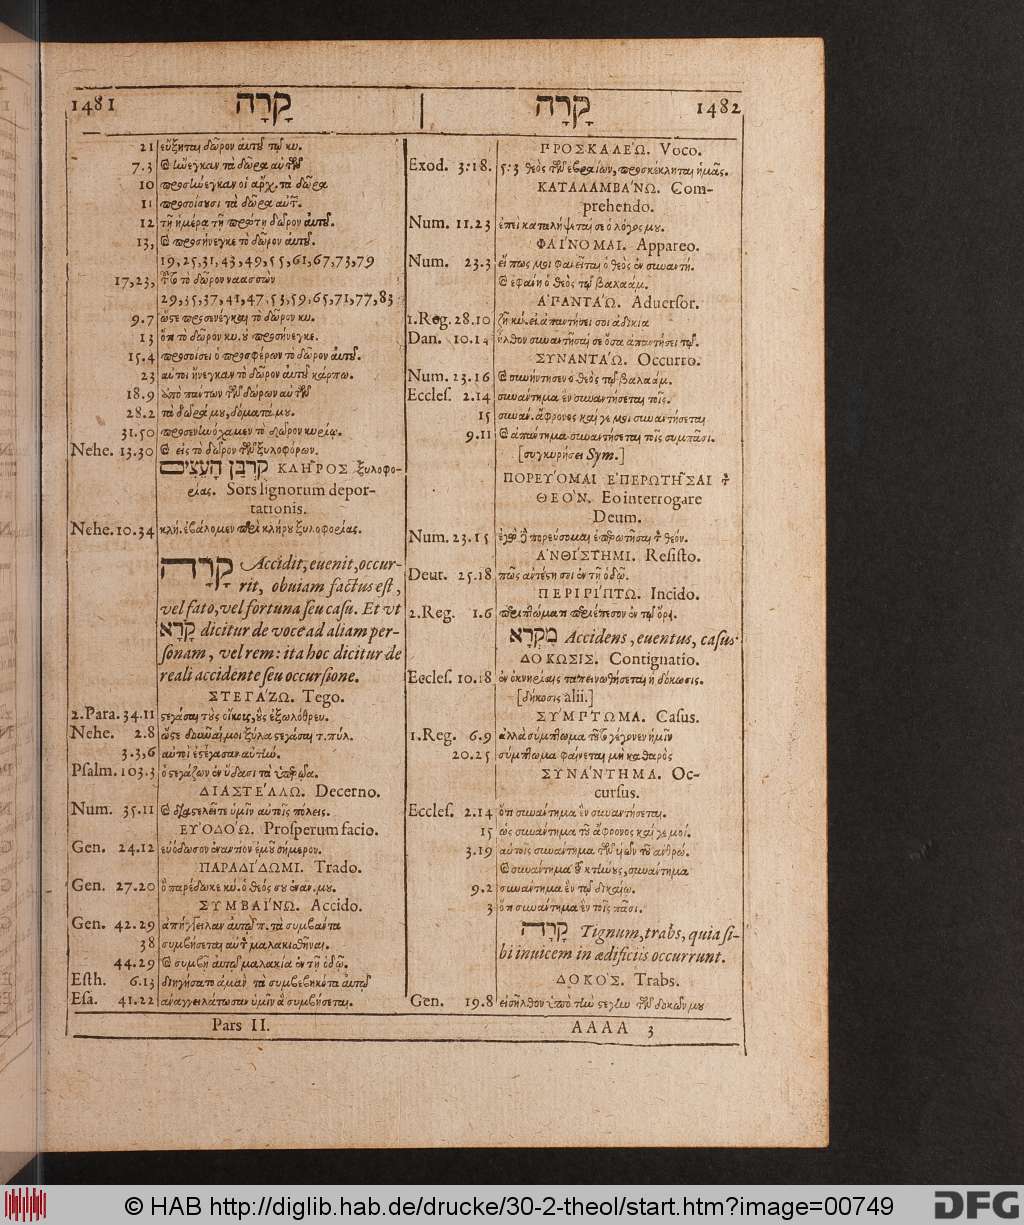 1481 קָרָה | קָרָה 1482
21 εὔξηται δῶρον αὐτοῦ τῷ κυ.
7.3 καὶ ἤνεγκαν τὰ δῶρα αὐτῶν
10 προσήνεγκαν οἱ ἄρχ. τὰ δῶρα
11 προσοίσουσι τὰ δῶρα αὐτ.
12 τῇ ἡμέρᾳ τῇ πρώτῃ δῶρον αὐτοῦ.
13, καὶ προσήνεγκε τὸ δῶρον αὐτοῦ.
19,25,31,43,49,55,61,67,73,79
17,23, τοῦτο τὸ δῶρον ναασσὼν
29,35,37,41,47,53,59,65,71,77,83
9.7 ὥστε προσενέγκαι τὸ δῶρον κυ.
13 ὅτι τὸ δῶρον κυ. οὐ προσήνεγκε.
15.4 προσοίσει ὁ προσφέρων τὸ δῶρον αὐτοῦ.
23 αὐτοὶ ἤνεγκαν τὸ δῶρον αὐτοῦ κάρπω.
18.9 ἀπὸ πάντων τῶν δώρων αὐτῶν
28.2 τὰ δῶρά μου, δόματά μου.
31.50 προσενηνόχαμεν τὸ δῶρον κυρίῳ.
Nehe. 13.30 καὶ εἰς τὸ δῶρον τῶν ξυλοφόρων.
קֻרְבַּן הָעֵצִים ΚΛΗ͂ΡΟΣ ξυλοφο-
ρίας. Sors lignorum depor-
tationis.
Nehe. 10.34 κλή. ἐβάλομεν περὶ κλήρου ξυλοφορίας.
קָרָה Accidit, euenit, occur-
rit, obuiam factus est,
vel fato, vel fortuna seu casu. Et vt
קָרָא dicitur de voce ad aliam per-
sonam, vel rem: ita hoc dicitur de
reali accidente seu occursione.
ΣΤΕΓΑ´ΖΩ. Tego.
2.Para. 34.11 στεγάσαι τοὺς οἴκους, οὓς ἐξωλόθρευ.
Nehe. 2.8 ὥστε δοῦναί μοι ξύλα στεγάσαι τ. πύλ.
3.3,6 αὐτοὶ ἐστέγασαν αὐτήν.
Psalm. 103.3 ὁ στεγάζων ἐν ὕδασι τὰ ὑπερῷα.
ΔΙΑΣΤΕ´ΛΛΩ. Decerno.
Num. 35.11 καὶ διαστελεῖτε ὑμῖν αὐτοῖς πόλεις.
ΕΥ᾿ΟΔΟ´Ω. Prosperum facio.
Gen. 24.12 εὐόδωσον ἐναντίον ἐμοῦ σήμερον.
ΠΑΡΑΔΙ´ΔΩΜΙ. Trado.
Gen. 27.20 ὃ παρέδωκε κύ. ὁ θεός σου ἐναν. μου.
ΣΥΜΒΑΙ´ΝΩ. Accido.
Gen. 42.29 ἀπήγγειλαν αὐτῷ π. τὰ συμβάντα
38 συμβήσεται αὐτὸν μαλακισθῆναι.
44.29 καὶ συμβῇ αὐτῷ μαλακία ἐν τῇ ὁδῷ.
Esth. 6.13 διηγήσατο ἀμὰν τὰ συμβεβηκότα αὐτῷ
Esa. 41.22 ἀναγγειλάτωσαν ὑμῖν ἃ συμβήσεται.
Pars II.
ΠΡΟΣΚΑΛΕ´Ω. Voco.
Exod. 3.18. 5:3 θεὸς τῶν εβραίων, προσκέκληται ἡμᾶς.
ΚΑΤΑΛΑΜΒΑ´ΝΩ. Com-
prehendo.
Num. 11.23 ἐπικαταλήψεταί σε ὁ λόγος μου.
ΦΑΙ´ΝΟΜΑΙ. Appareo.
Num. 23.3 εἴ πως μοι φανεῖται ὁ θεὸς ἐν συναντή.
καὶ ἐφάνη ὁ θεὸς τῷ βαλαάμ.
Α᾿ΠΑΝΤΑ´Ω. Aduersor.
1.Reg. 28.10 ζῇ κύ. εἰ ἀπαντήσει σοι ἀδικία
Dan. 10.14 ἦλθον συναντῆσαί σε ὅσα ἀπαντήσει τῷ.
ΣΥΝΑΝΤΑ´Ω. Occurro.
Num. 23.16 καὶ συνήντησεν ὁ θεὸς τῷ βαλαάμ.
Eccles. 2.14 συνάντημα ἓν συναντήσεται τοῖς.
15 συναν. ἄφρονος καί γε μοι συναντήσεται
9.11 καὶ ἀπάντημα συναντήσεται τοῖς συμπᾶσι.
[συγκυρήσει Sym.]
ΠΟΡΕΥ´ΟΜΑΙ ΕΠΕΡΩΤΗ͂ΣΑΙ τὸν
ΘΕΟ´Ν. Eo interrogare
Deum.
Num. 23.15 ἐγὼ δὲ πορεύσομαι ἐπερωτῆσαι τὸν θεόν.
Α᾿ΝΘΙ´ΣΤΗΜΙ. Resisto.
Deut. 25.18 πῶς ἀντέστη σοι ἐν τῇ ὁδῷ.
ΠΕΡΙΠΙ´ΠΤΩ. Incido.
2.Reg. 1.6 περιπτώματι περιέπεσον ἐν τῷ ὄρι.
מִקְרָא Accidens, euentus, casus
ΔΟ´ΚΩΣΙΣ. Contignatio.
Eccles. 10.18 ἐν ὀκνηρίαις ταπεινωθήσεται ἡ δόκωσις.
[δήκοσις alii.]
ΣΥ´ΜΠΤΩΜΑ. Casus.
1.Reg. 6.9 ἀλλὰ σύμπτωμα τοῦτο γέγονεν ἡμῖν
20.25 σύμπτωμα φαίνεται μὴ καθαρὸς
ΣΥΝΑ´ΝΤΗΜΑ. Oc-
cursus.
Eccles. 2.14 ὅτι συνάντημα ἓν συναντήσεται.
15 ὡς συνάντημα τοῦ ἄφρονος καί γε μοί.
3.19 αὐτοῖς συνάντημα τῶν υἱῶν τοῦ ἀνθρώ.
καὶ συνάντημα τοῦ κτήνους, συνάντημα
9.2 συνάντημα ἓν τῷ δικαίῳ.
3 ὅτι συνάντημα ἓν τοῖς πᾶσι.
קָרָה Tignum, trabs, quia si-
bi inuicem in ædificiis occurrunt.
ΔΟΚΟ´Σ. Trabs.
Gen. 19.8 εἰσῆλθον ὑπὸ τὴν στέγην τῶν δοκῶν μου
AAAA 3
© HAB http://diglib.hab.de/drucke/30-2-theol/start.htm?image=00749
DFG